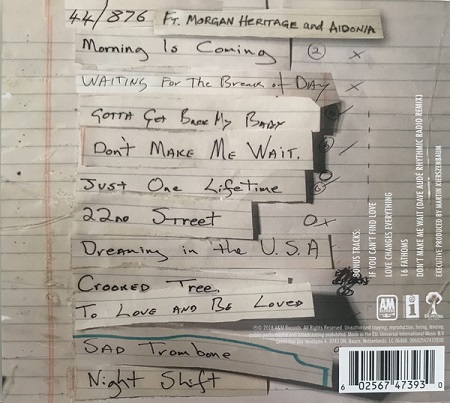 44/876 FT. MORGAN HERITAGE and AIDONIA
Morning Is Coming
WAITING For The Break of DAY
GOTTA Get Back My BABY
Don't MAKE Me WAIT.
Just One Lifetime
22nd Street
Dreaming in the U.S.A
CROOKED Tree.
To LOVE AND Be Loved
SAD Trombone
Night Shift
BONUS TRACKS:
IF YOU CAN'T FIND LOVE
LOVE CHANGES EVERYTHING
16 FATHOMS
DON'T MAKE ME WAIT (DAVE AUDÉ RHYTHMIC RADIO REMIX)
EXECUTIVE PRODUCED BY MARTIN KIERSZENBAUM
A&M
i
2018 A&M Records. All Rights Reserved. Unauthorized copying, reproduction, hiring, lending,
6 02567 47393 0